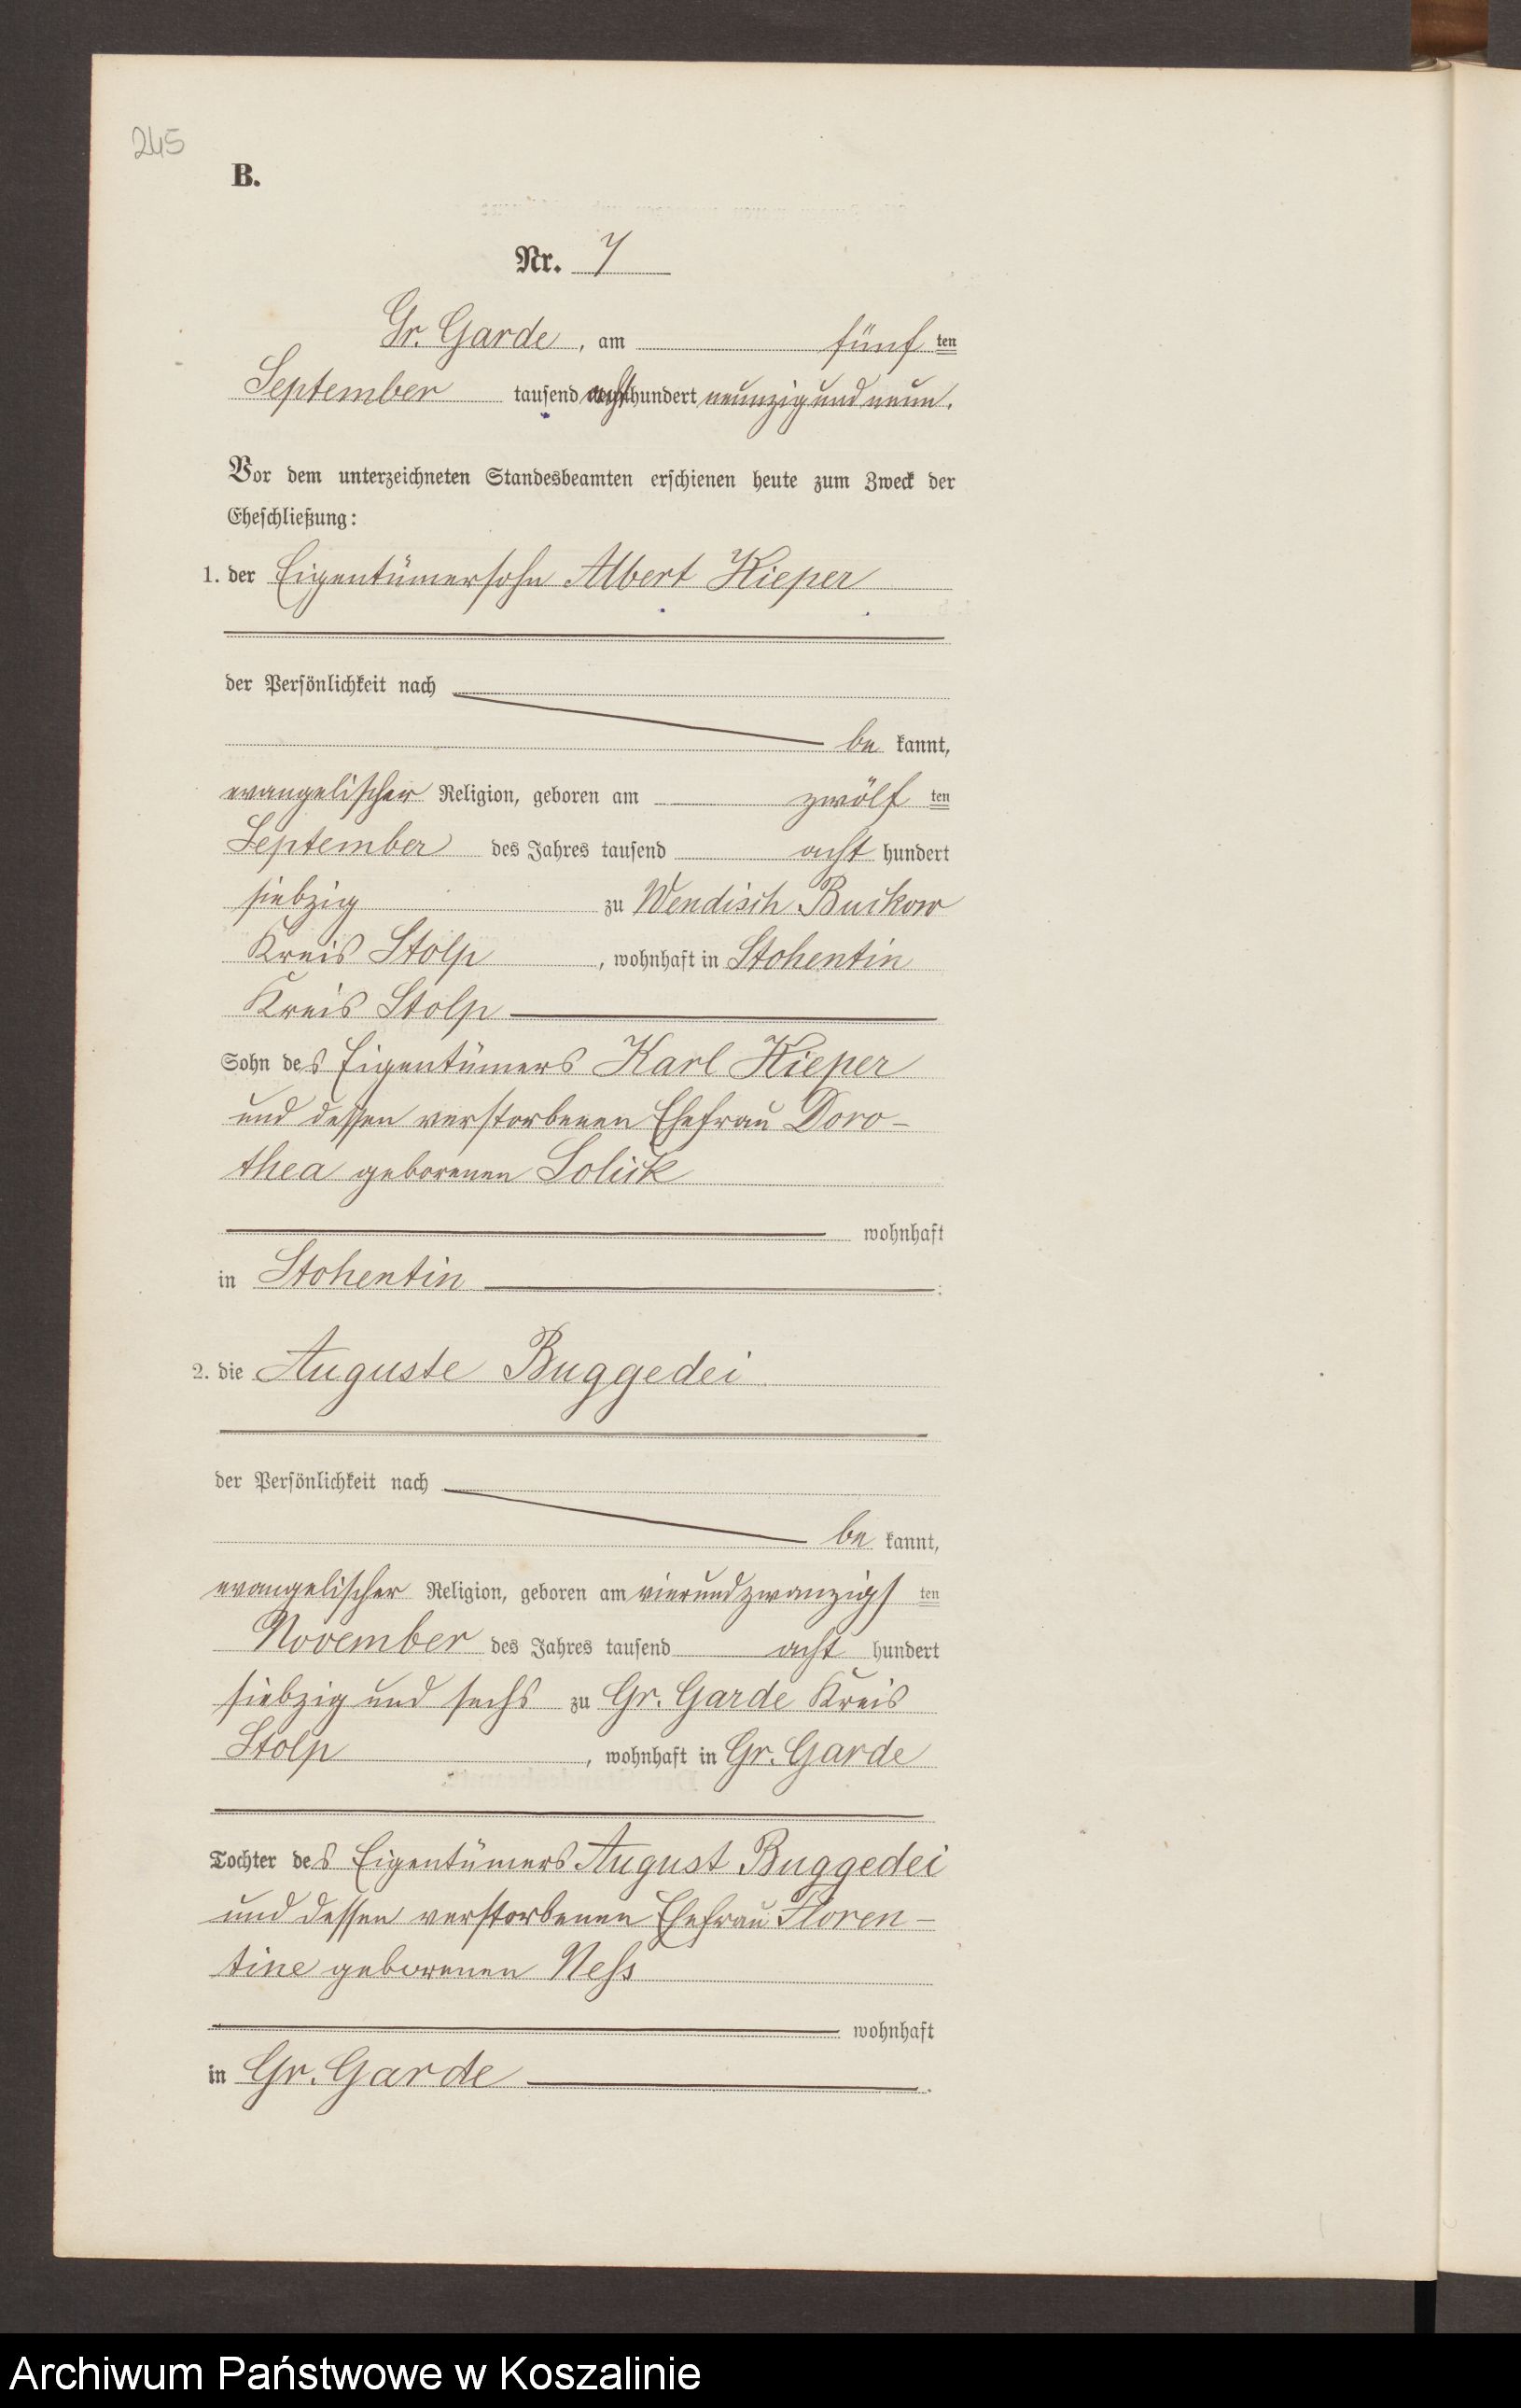 245
B.
Nr. 7
Gr. Garde, am fünf ten
September tausend acht hundert neunzig und neun.
Vor dem unterzeichneten Standesbeamten erschienen heute zum Zweck der
Eheschließung:
1. der Eigentümersohn Albert Kieper
der Persönlichkeit nach
be kannt,
evangelischer Religion, geboren am zwölf ten
September des Jahres tausend acht hundert
siebzig zu Wendisch Buckow
Kreis Stolp, wohnhaft in Stohentin
Kreis Stolp
Sohn des Eigentümers Karl Kieper
und dessen verstorbenen Ehefrau Doro-
thea geborenen Solick
wohnhaft
in Stohentin.
2. die Auguste Buggedei
der Persönlichkeit nach
be kannt,
evangelischer Religion, geboren am vierundzwanzigs ten
November des Jahres tausend acht hundert
siebzig und sechs zu Gr. Garde Kreis
Stolp, wohnhaft in Gr. Garde
Tochter des Eigentümers August Buggedei
und dessen verstorbenen Ehefrau Floren-
tine geborenen Neß
wohnhaft
in Gr. Garde.
Archiwum Państwowe w Koszalinie